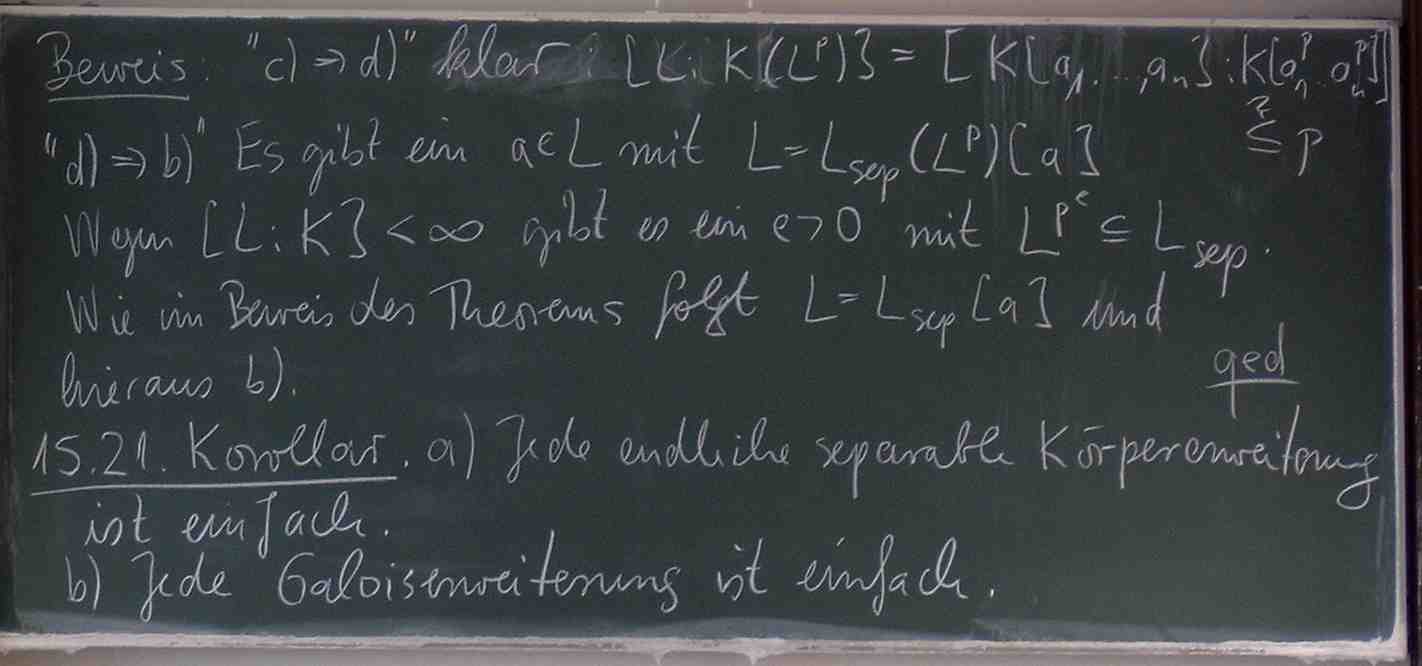 Beweis: "c) ⇒ d)" klar: [L : K(L^p)] = [K[a_1, ..., a_n] : K[a_1^p ... a_n^p]]
? ≤ p
"d) ⇒ b)" Es gibt ein a ∈ L mit L = L_sep (L^p)[a]
Wegen [L : K] < ∞ gibt es ein e > 0 mit L^{p^e} ⊆ L_sep.
Wie im Beweis des Theorems folgt L = L_sep [a] und
hieraus b).
qed
15.21. Korollar. a) Jede endliche separable Körpererweiterung
ist einfach.
b) Jede Galoiserweiterung ist einfach.